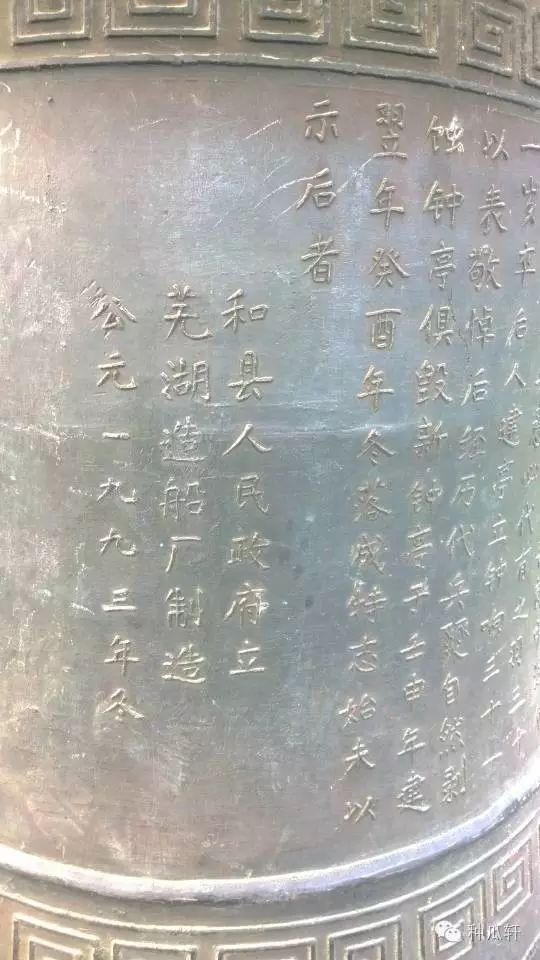 一岁卒后人建亭立钟响三十一
以表敬悼后经历代兵燹自然剥
蚀钟亭俱毁新钟亭于壬申年建
翌年癸酉年冬落成特志始末以
示后者
和县人民政府立
芜湖造船厂制造
公元一九九三年冬
种瓜轩